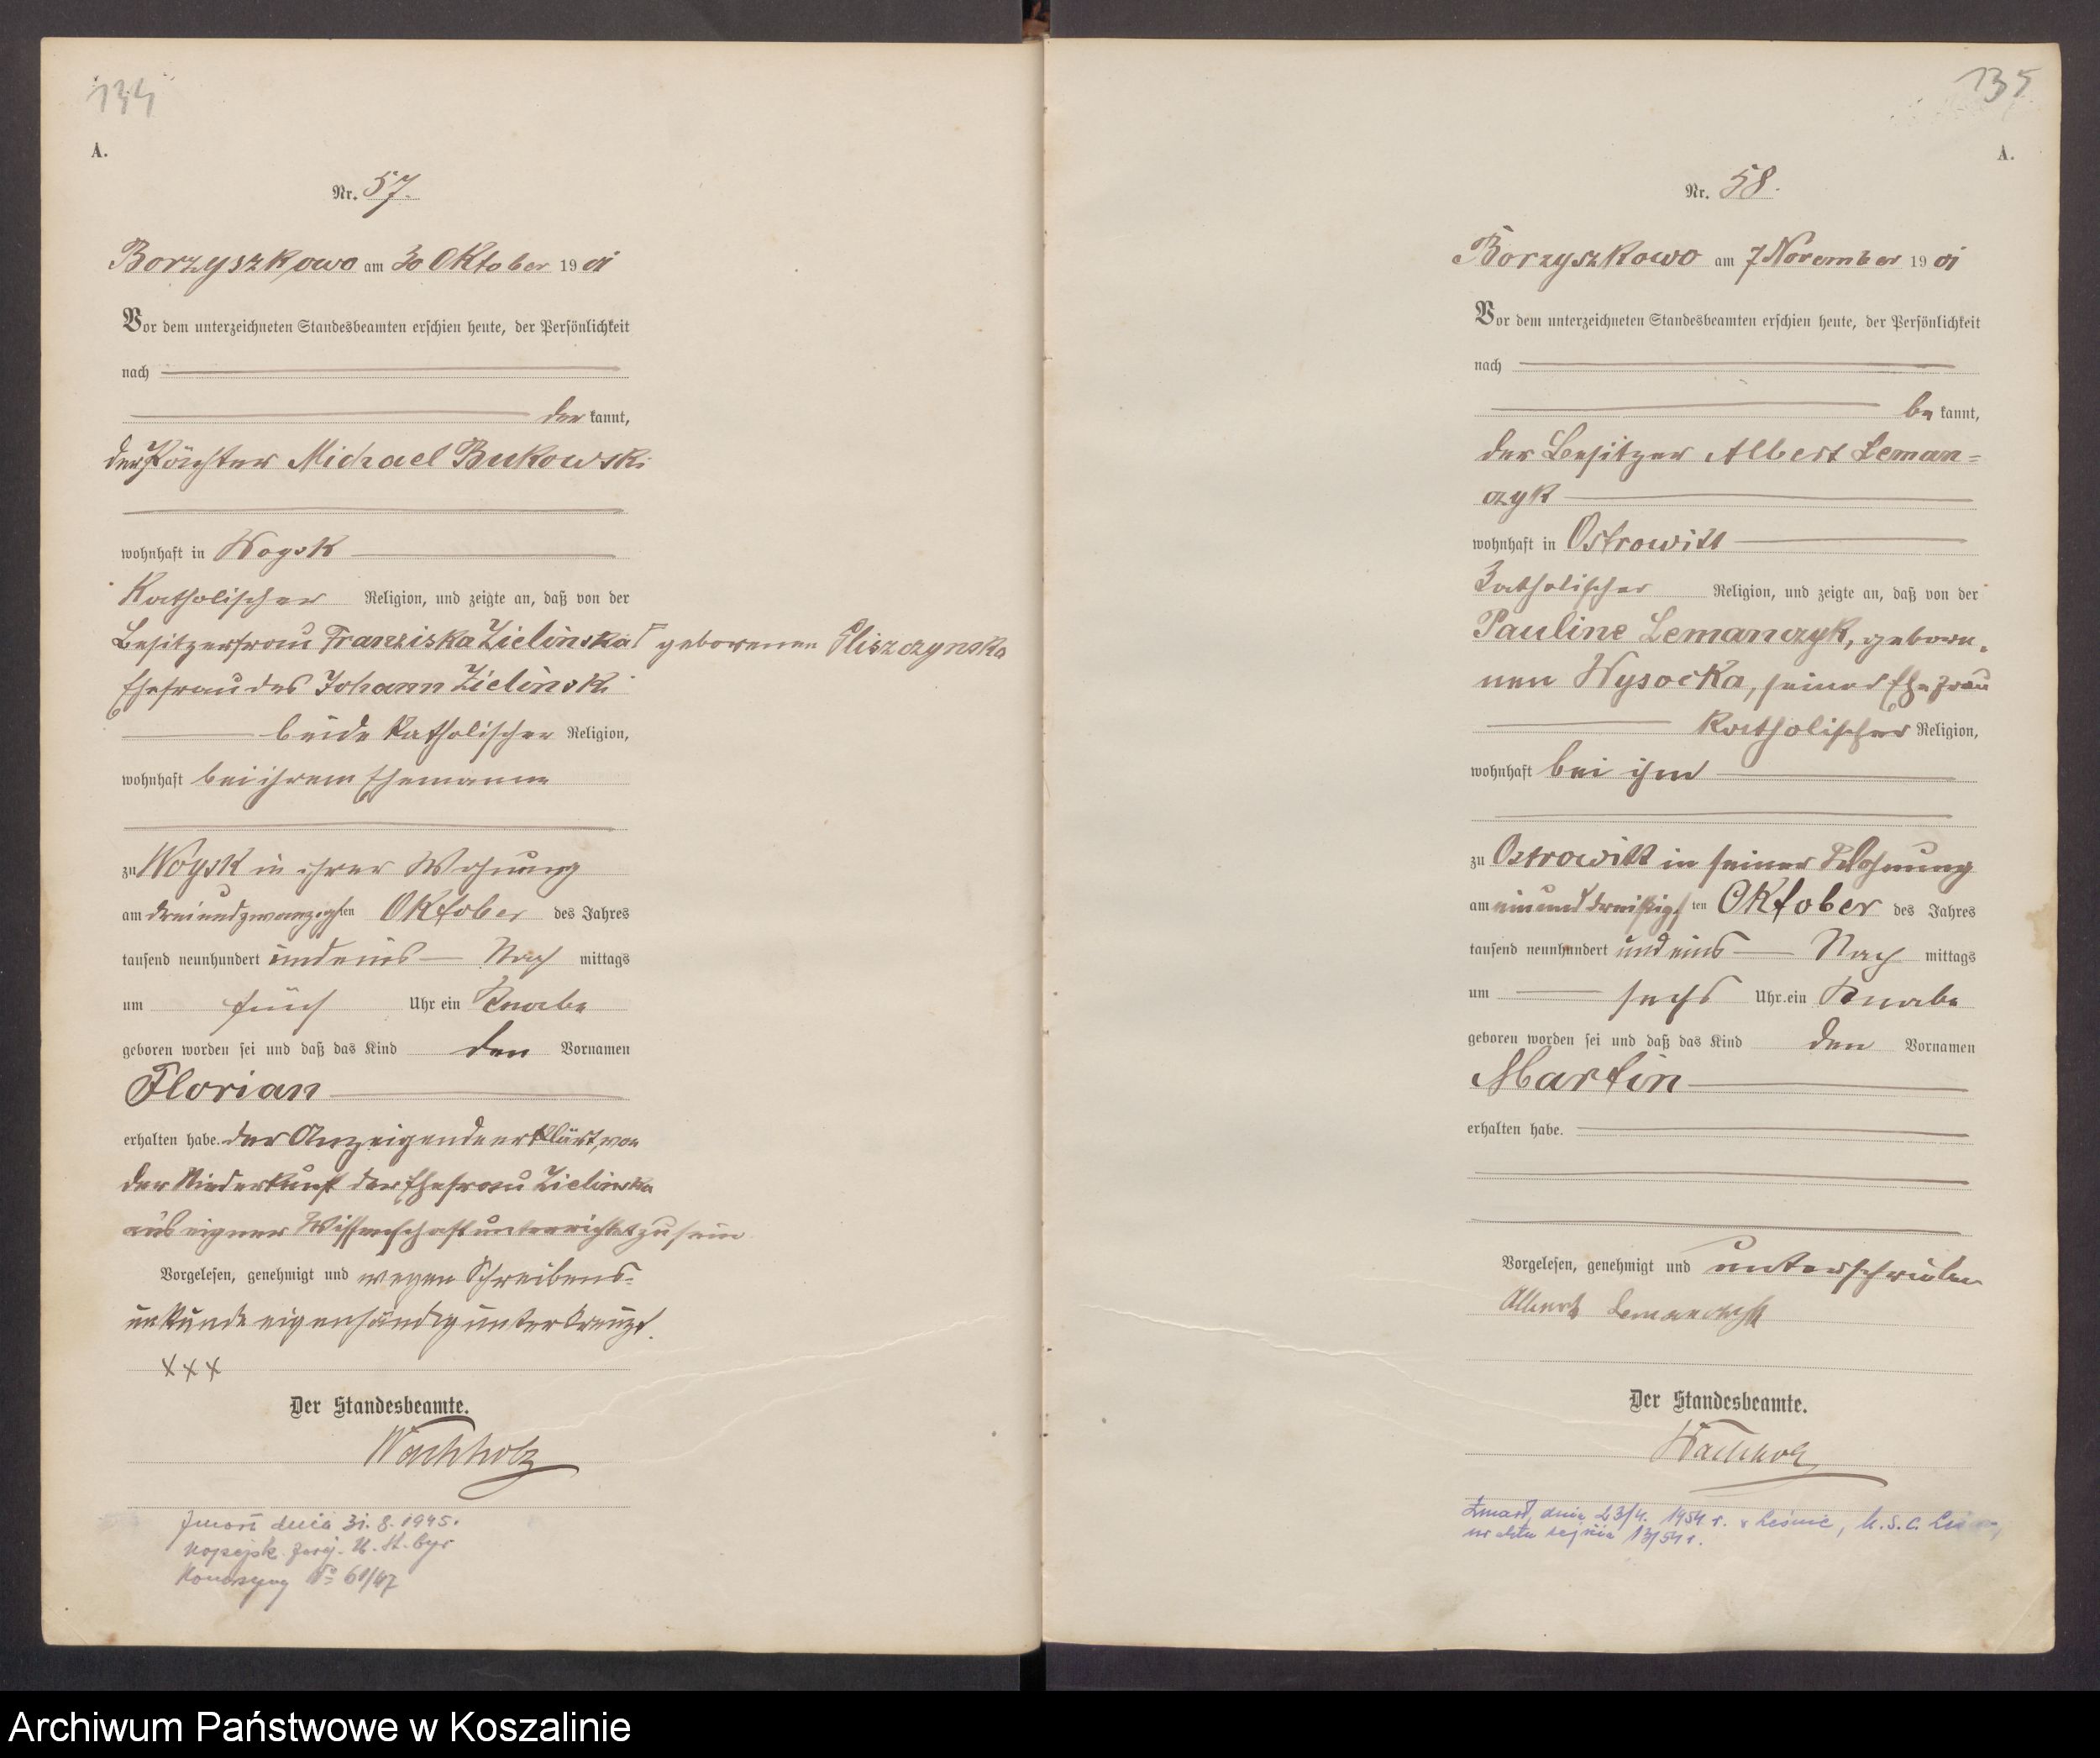 134
A.
Nr. 57.
Borzyszkowo am 30 Oktober 1901
Vor dem unterzeichneten Standesbeamten erschien heute, der Persönlichkeit
nach
der kannt,
der Pächter Michael Bukowski
wohnhaft in Woysk
Katholischer Religion, und zeigte an, daß von der
Besitzerfrau Franziska Zielinska geborenen Gliszczynska
Ehefrau des Johann Zielinski
beide katholischer Religion,
wohnhaft bei ihrem Ehemanne
zu Woysk in ihrer Wohnung
am dreiundzwanzigsten Oktober des Jahres
tausend neunhundert und eins Nach mittags
um fünf Uhr ein Knabe
geboren worden sei und daß das Kind den Vornamen
Florian
erhalten habe. der Anzeigende erklärt, von
der Niederkunft der Ehefrau Zielinska
aus eigner Wissenschaft unterrichtet zu sein
Vorgelesen, genehmigt und wegen Schreibens-
unkunde eigenhändig unterkreuzt.
xxx
Der Standesbeamte.
Wachholz
dnia 31. 8. 1945.
Konarzyny No 61/47
135
A.
Nr. 58.
Borzyszkowo am 7 November 1901
Vor dem unterzeichneten Standesbeamten erschien heute, der Persönlichkeit
nach
be kannt,
der Besitzer Albert Leman=
czyk
wohnhaft in Ostrowitt
katholischer Religion, und zeigte an, daß von der
Pauline Lemanczyk, gebore-
nen Wysocka, seiner Ehefrau
katholischer Religion,
wohnhaft bei ihm
zu Ostrowitt in seiner Wohnung
am einunddreißigsten Oktober des Jahres
tausend neunhundert und eins Nach mittags
um sechs Uhr ein Knabe
geboren worden sei und daß das Kind den Vornamen
Martin
erhalten habe.
Vorgelesen, genehmigt und unterschrieben
Albert Lemanczyk
Der Standesbeamte.
Wachholz
Zmarł dnia 23/4. 1954 r. w Leśnie, U.S.C.
nr aktu zejścia 13/54 r.
Archiwum Państwowe w Koszalinie